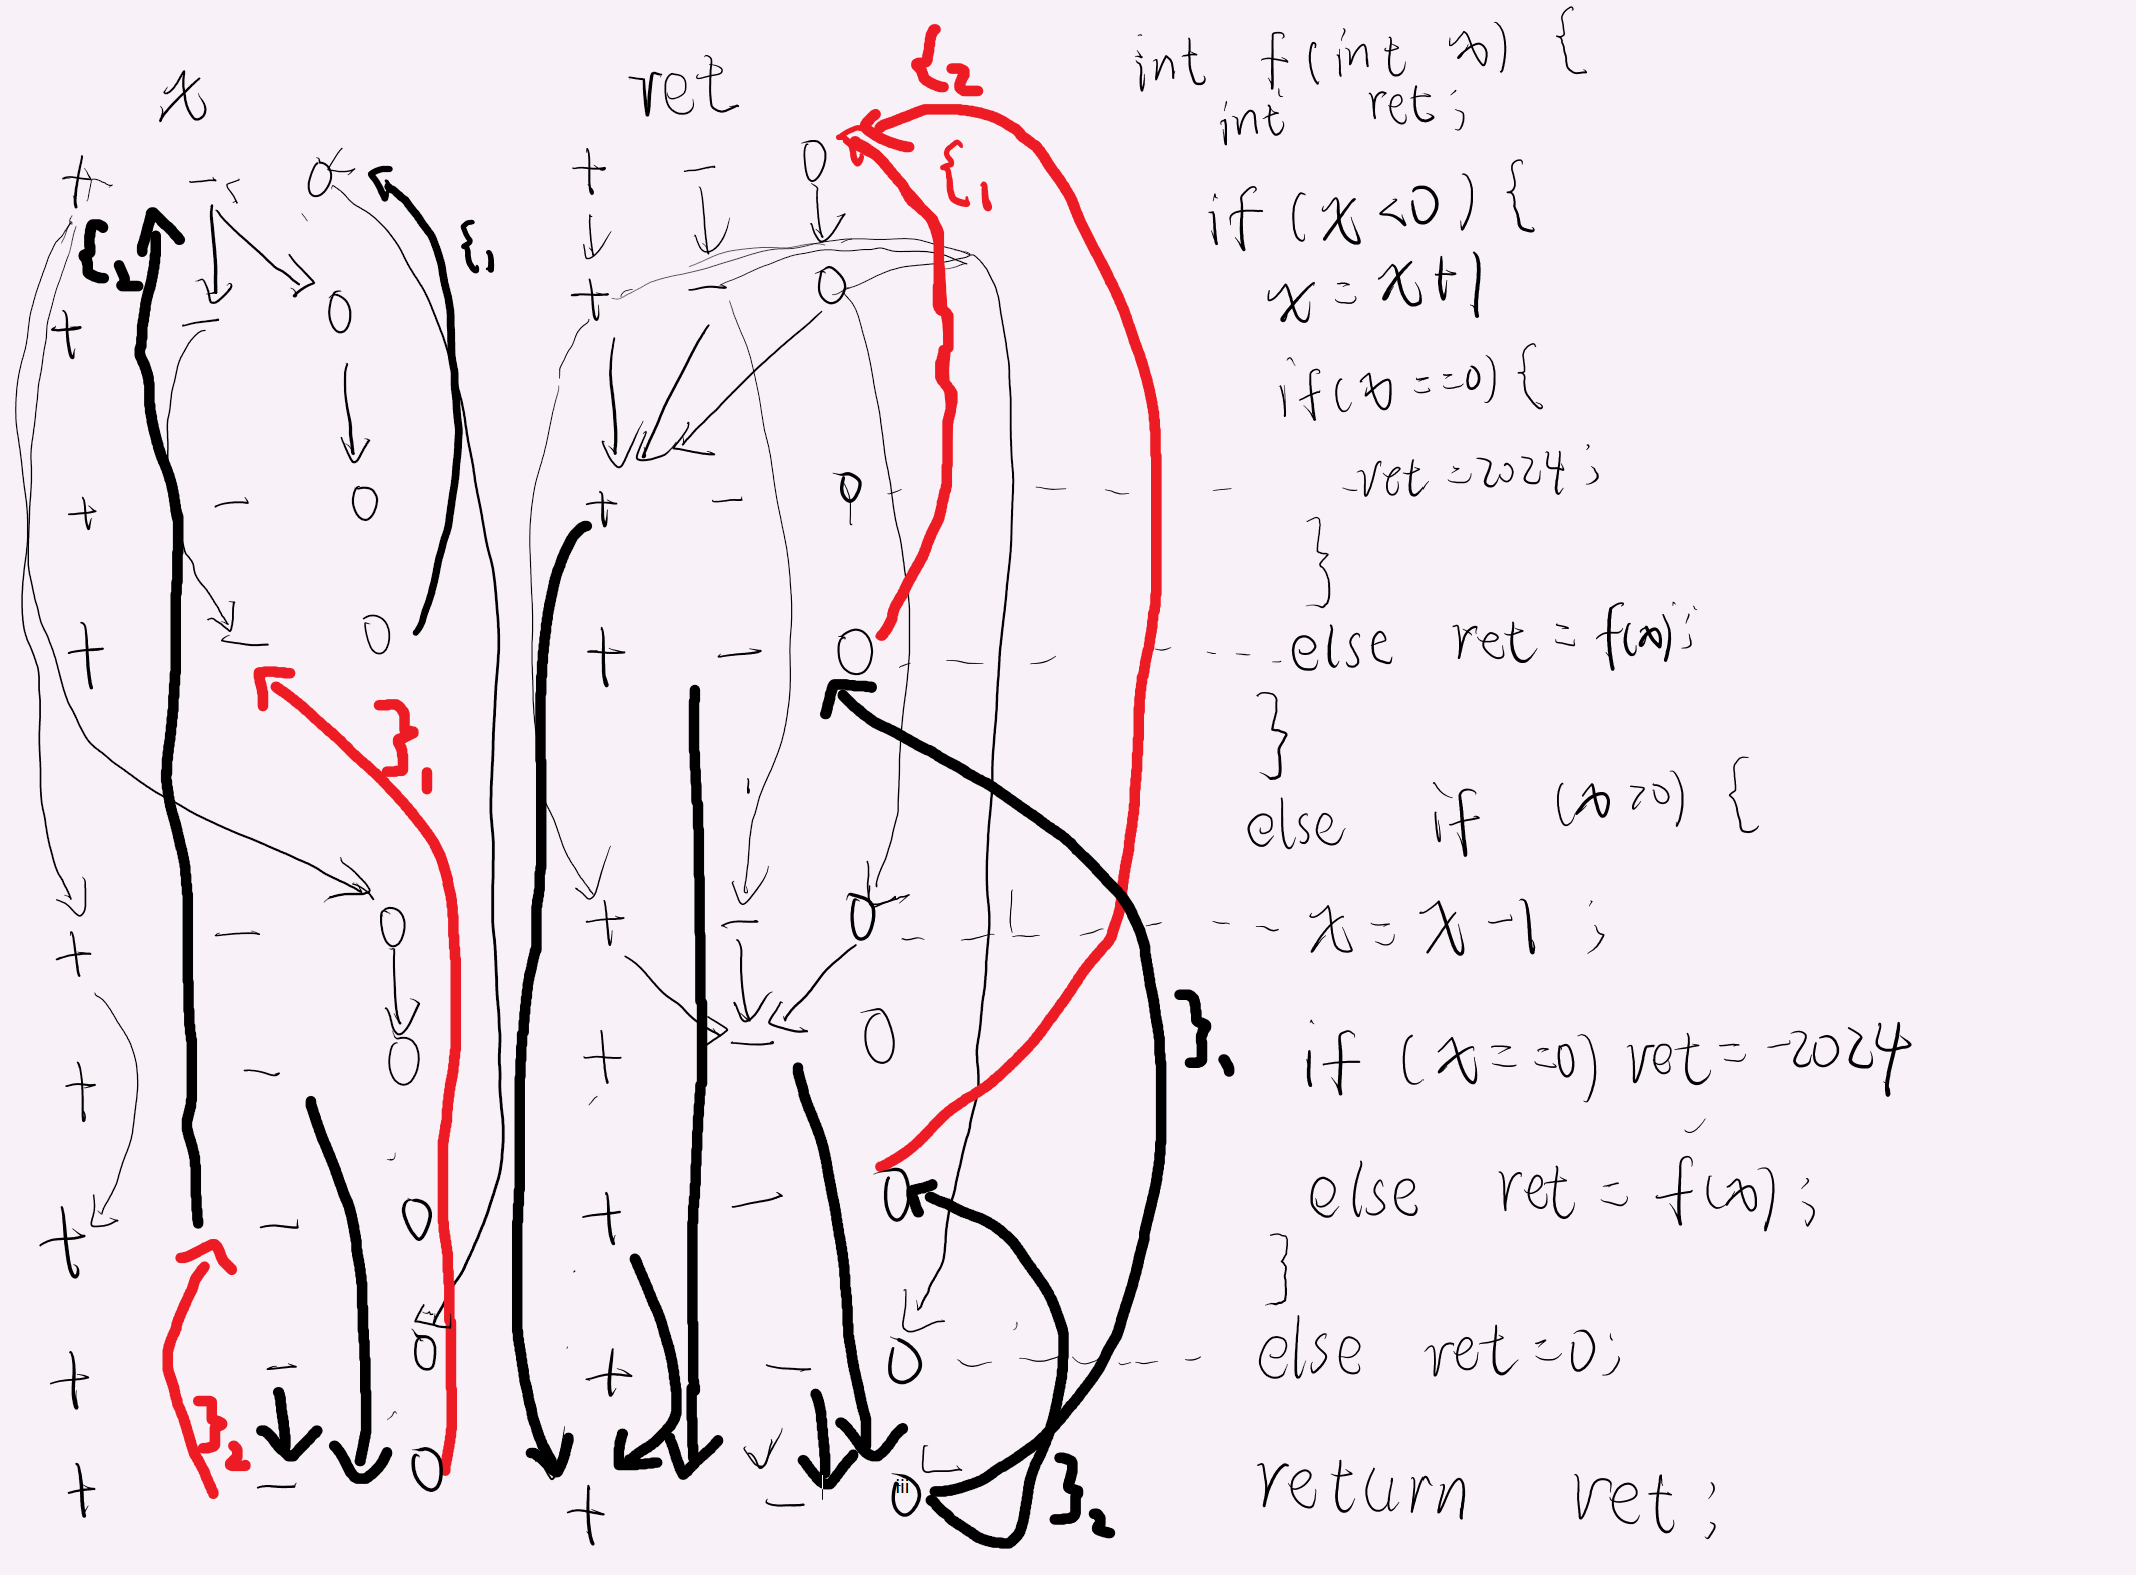 x ret
+ - 0 + - 0
{2 {1 {2 {1
+ - 0 + - 0
+ - 0 + - 0
+ - 0 + - 0
}1
+ - 0 + - 0
+ - 0 + - 0
}1
+ - 0 + - 0
+ - 0 + - 0
}2
+ - 0 + - 0
iii
}2
int f(int x) {
int ret;
if (x<0) {
x = x+1
if(x==0){
ret=2024;
}
else ret = f(x);
}
else if (x>0) {
x = x-1;
if (x==0) ret=-2024
else ret = f(x);
}
else ret=0;
return ret;